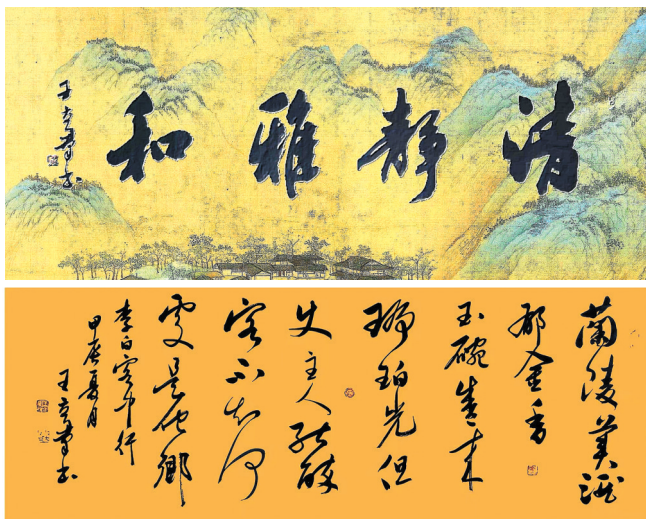 清靜雅和
王
书
蘭陵美酒
郁金香
玉碗盛来
琥珀光但
使主人能醉
客不知何
處是他鄉
李白客中行
甲辰夏月
王
书